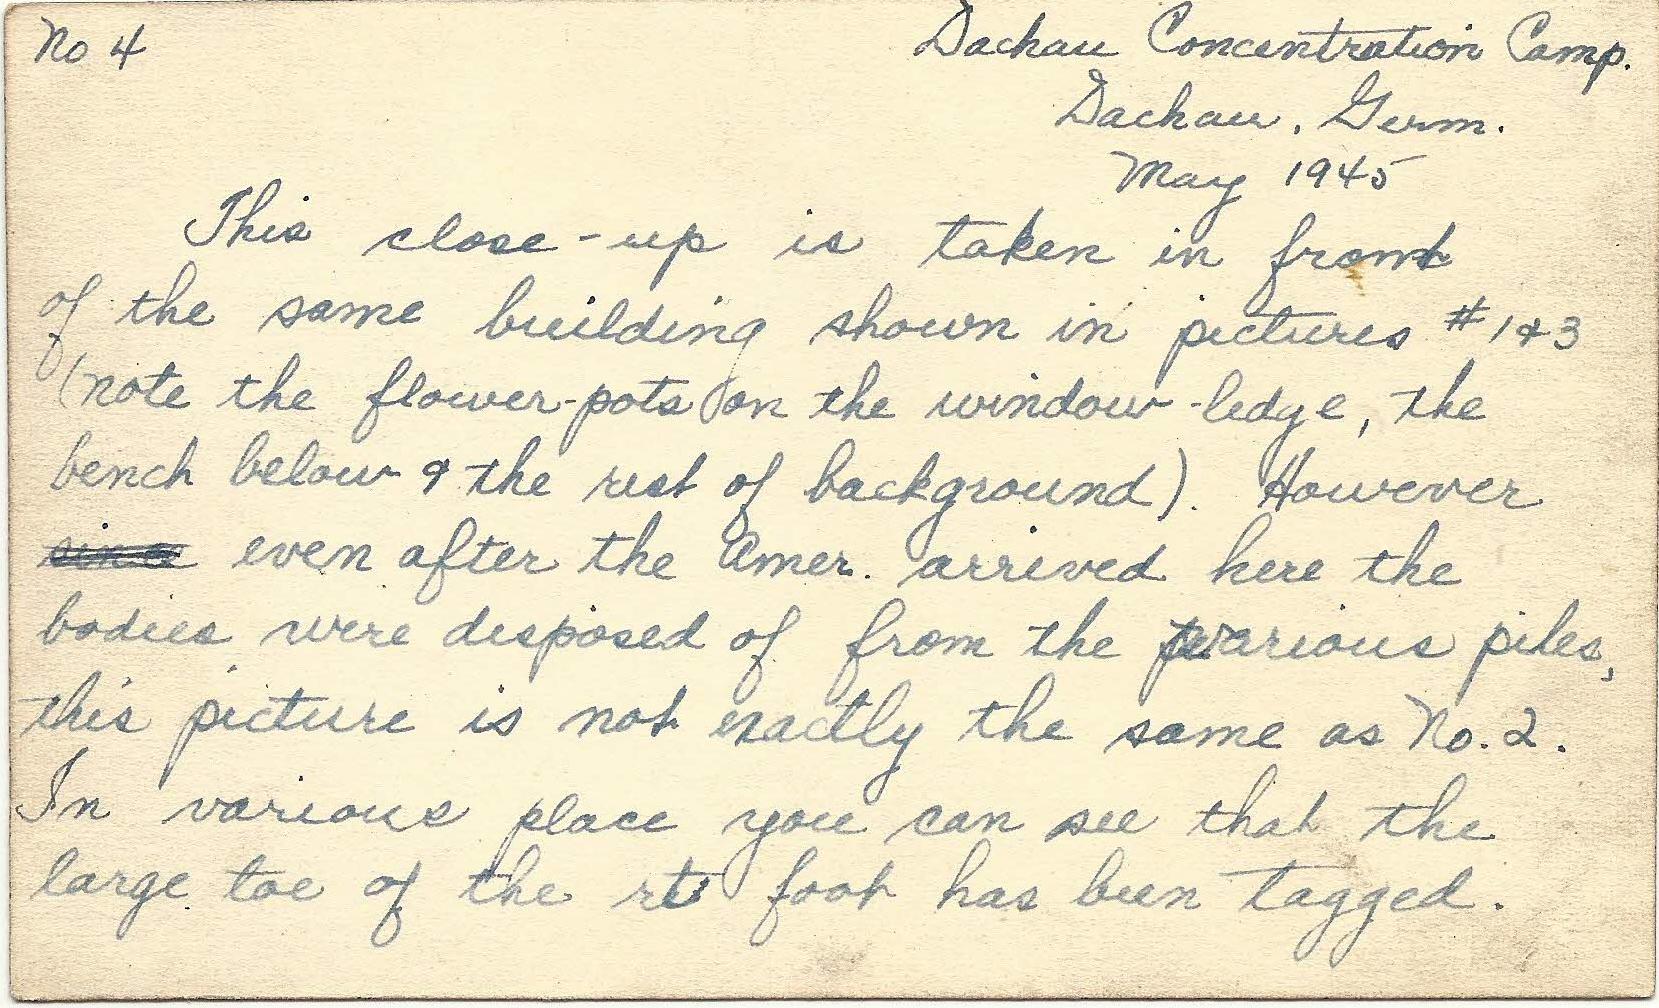 No 4
Dachau Concentration Camp.
Dachau, Germ.
May 1945
This close-up is taken in front
of the same building shown in pictures # 1 & 3
(note the flower-pots on the window-ledge, the
bench below & the rest of background). However
even after the Amer. arrived here the
bodies were disposed of from the various piles,
this picture is not exactly the same as No. 2.
In various place you can see that the
large toe of the rt foot has been tagged.